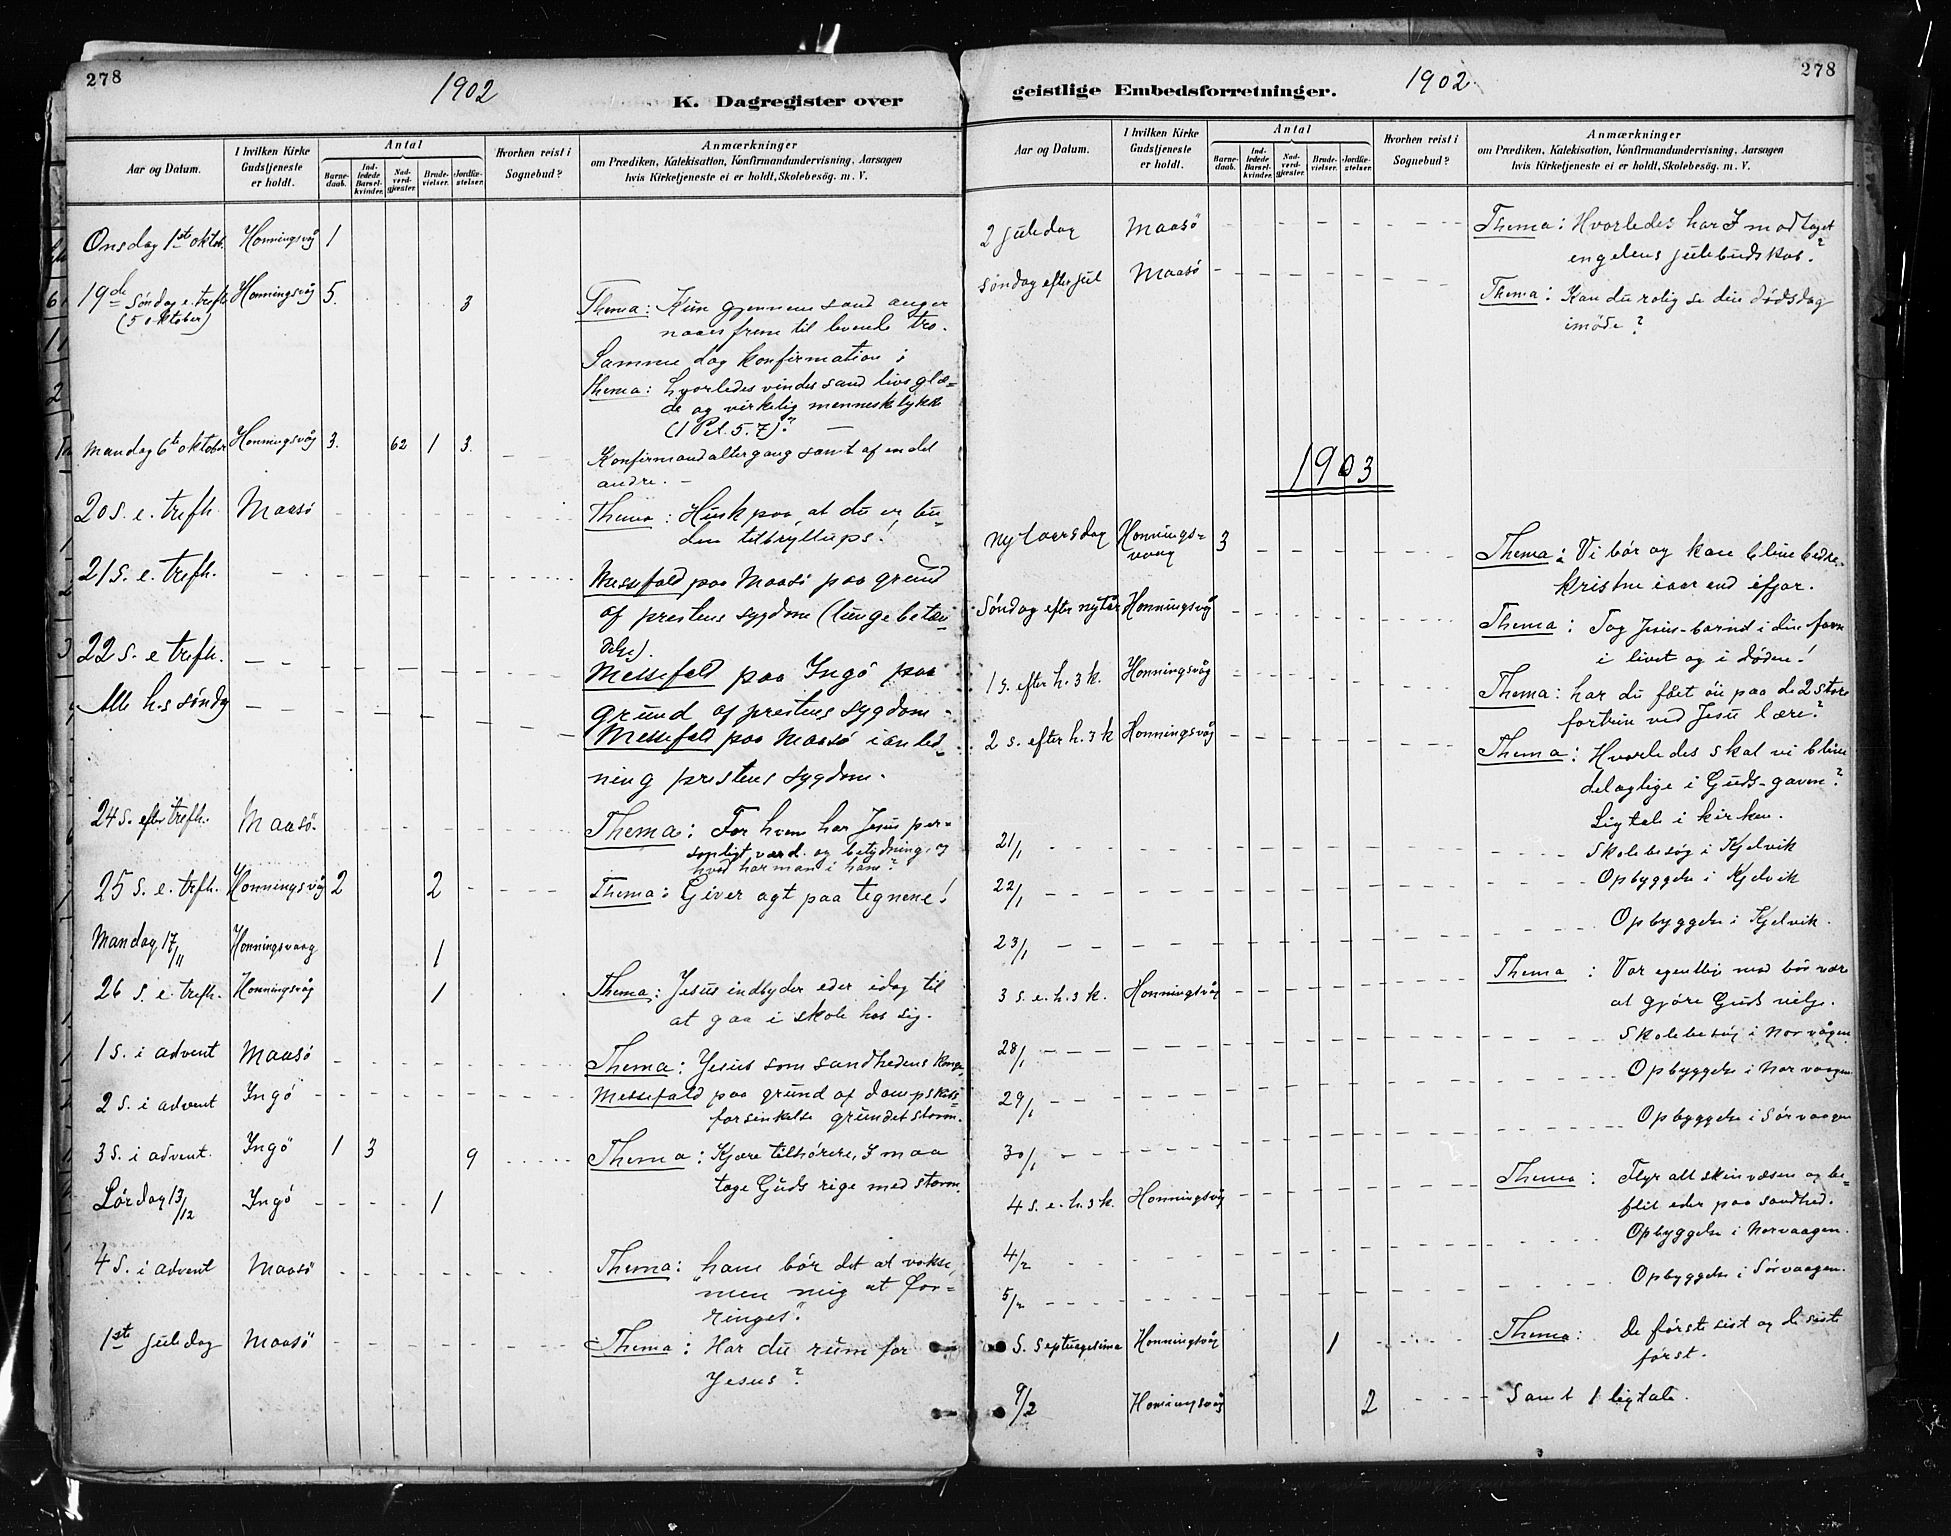 278
1902
K. Dagregister over
Aar og Datum.
I hvilken Kirke Gudstjeneste er holdt.
Antal
Barnedaab.
Indledede Barselkvinder.
Nadverdgjæster.
Brudevielser.
Jordfæstelser.
Hvorhen reist i Sognebud?
Anmærkninger
om Prædiken, Katekisation, Konfirmandundervisning, Aarsagen
hvis Kirketjeneste ei er holdt, Skolebesøg. m. V.
Onsdag 1ste oktob. Honningsvåg 1
19de Søndag e. trefh. Honningsvåg 5. 3
(5 oktober)
Thema: Kun gjennem sand anger
naaes frem til levende tro.
Samme dag konfirmation;
Thema: hvorledes vindes sand livsglæ-
de og virkelig mennesklykke
(1 Pet. 5. 7)?
Mandag 6te oktober Honningsvåg 3. 62 1 3.
Konfirmandaltergang samt af en del
andre. -
20 s. e. trefh. Maasö
Thema: Husk paa, at du er bu-
den tilbryllups!
21 s. e. trefh.
Messefald paa Maasö paa grund
af prestens sygdom (lungebetæn-
delse).
22 s. e trefh.
Messefald paa Ingö paa
grund af prestens sygdom.
Alle h-s søndag
Messefald paa Maasö i anled-
ning prestens sygdom.
24 s. efter trefh. Maasö.
Thema: For hvem har Jesus per-
sonligt værd og betydning, og
hvad har man i ham?
25 s. e. trefh. Honningsvåg 2 2
Thema: Giver agt paa tegnene!
Mandag 17/11 Honningsvaag 1
26 s. e. trefh. Honningsvåg 1
Thema: Jesus indbyder eder idag til
at gaa i skole hos sig.
1 s. i advent Maasö
Thema: Jesus som sandhedens konge
2 s. i advent Ingö
Messefald paa grund af dampskibs-
forsinkelse grundet storm.
3 s. i advent. Ingö 1 3 9
Thema: Kjære tilhörere, I maa
tage Guds rige med storm.
Lørdag 13/12 Ingö 1
4 s. i advent Maasö
Thema: "ham bør det at vokse,
men mig at for-
ringes".
1ste juledag Maasö
Thema: Har du rum for
Jesus?
278
1902
geistlige Embedsforretninger.
Aar og Datum.
I hvilken Kirke Gudstjeneste er holdt.
Antal
Barnedaab.
Indledede Barselkvinder.
Nadverdgjæster.
Brudevielser.
Jordfæstelser.
Hvorhen reist i Sognebud?
Anmærkninger
om Prædiken, Katekisation, Konfirmandundervisning, Aarsagen
hvis Kirketjeneste ei er holdt, Skolebesøg. m. V.
2 juledag Maasö
Thema: Hvorledes har I modtaget
engelens julebudskab?
søndag efter jul Maasö
Thema: Kan du rolig se din dødsdag
imøde?
1903
Nytaarsdag Honnings-
vaag 3
Thema: Vi bör og kan blive bedre
kristne iaar end ifjor.
Søndag efter nytår Honningsvåg
Thema: Tag Jesus-barnet i din favn
i livet og i døden!
1 s. efter h. 3 k. Honningsvåg
Thema: har du fået öie paa de 2 store
fortrin ved Jesu lære?
2 s. efter h. 3 k Honningsvåg
Thema: Hvorledes skal vi blive
delagtige i Guds-gaven?
Ligtale i kirken.
21/1 Skolebesøg i Kjelvik
Opbyggelse i Kjelvik
22/1
Opbyggelse i Kjelvik.
23/1
3 s. e. h. 3 k. Honningsvåg
Thema: Vor egentlig mad bör være
at gjöre Guds vilje.
Skolebesøg i Norvågen
28/1
Opbyggelse i Norvaagen
29/1
Opbyggelse i Sörvaagen
30/1
4 s. e. h. 3 k. Honningsvåg
Thema: Flyr alt skinvæsen og be-
flit eder paa sandhed.
Opbyggelse i Norvaagen.
4/2
Opbyggelse i Sörvaagen.
5/2
S. Septuagesima Honningsvåg 1
Thema: De første sist og de sist
først.
9/2 Honningsvåg 2
Samt 1 ligtale.